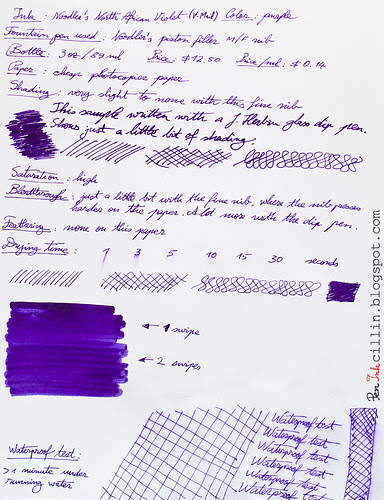 Ink: Noodler's North African Violet (V-Mail) Color: purple
Fountain pen used: Noodler's piston filler M/F nib
Bottle: 3oz/89ml Price: $12.50 Price/ml: $0.14
Paper: cheap photocopier paper
Shading: very slight to none with this fine nib
This sample written with a J. Herbin glass dip pen.
Shows just a little bit of shading.
Saturation: high
Bleedthrough: just a little bit with the fine nib, where the nib presses
harder on the paper. A lot more with the dip pen.
Feathering: none on this paper
Drying time: 1 3 5 10 15 30 seconds
← 1 swipe
← 2 swipes
PenInkcillin.blogspot.com
Waterproof test:
>1 minute under
running water
Waterproof test
Waterproof test
Waterproof test
Waterproof test
Waterproof test
Waterproof test